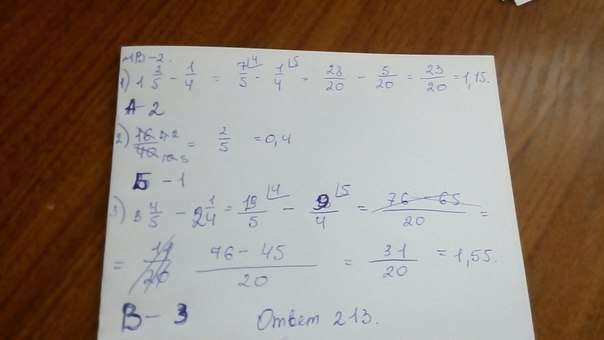 1) 1 2/5 - 1/4 = 7/5 - 1/4 = 28/20 - 5/20 = 23/20 = 1,15.
А - 2
2) 16/40 = 2/5 = 0,4
Б - 1
3) 3 4/5 - 2 1/4 = 19/5 - 9/4 = 76 - 65/20 =
= 19/20 76 - 45/20 = 31/20 = 1,55.
В - 3 Ответ 213.